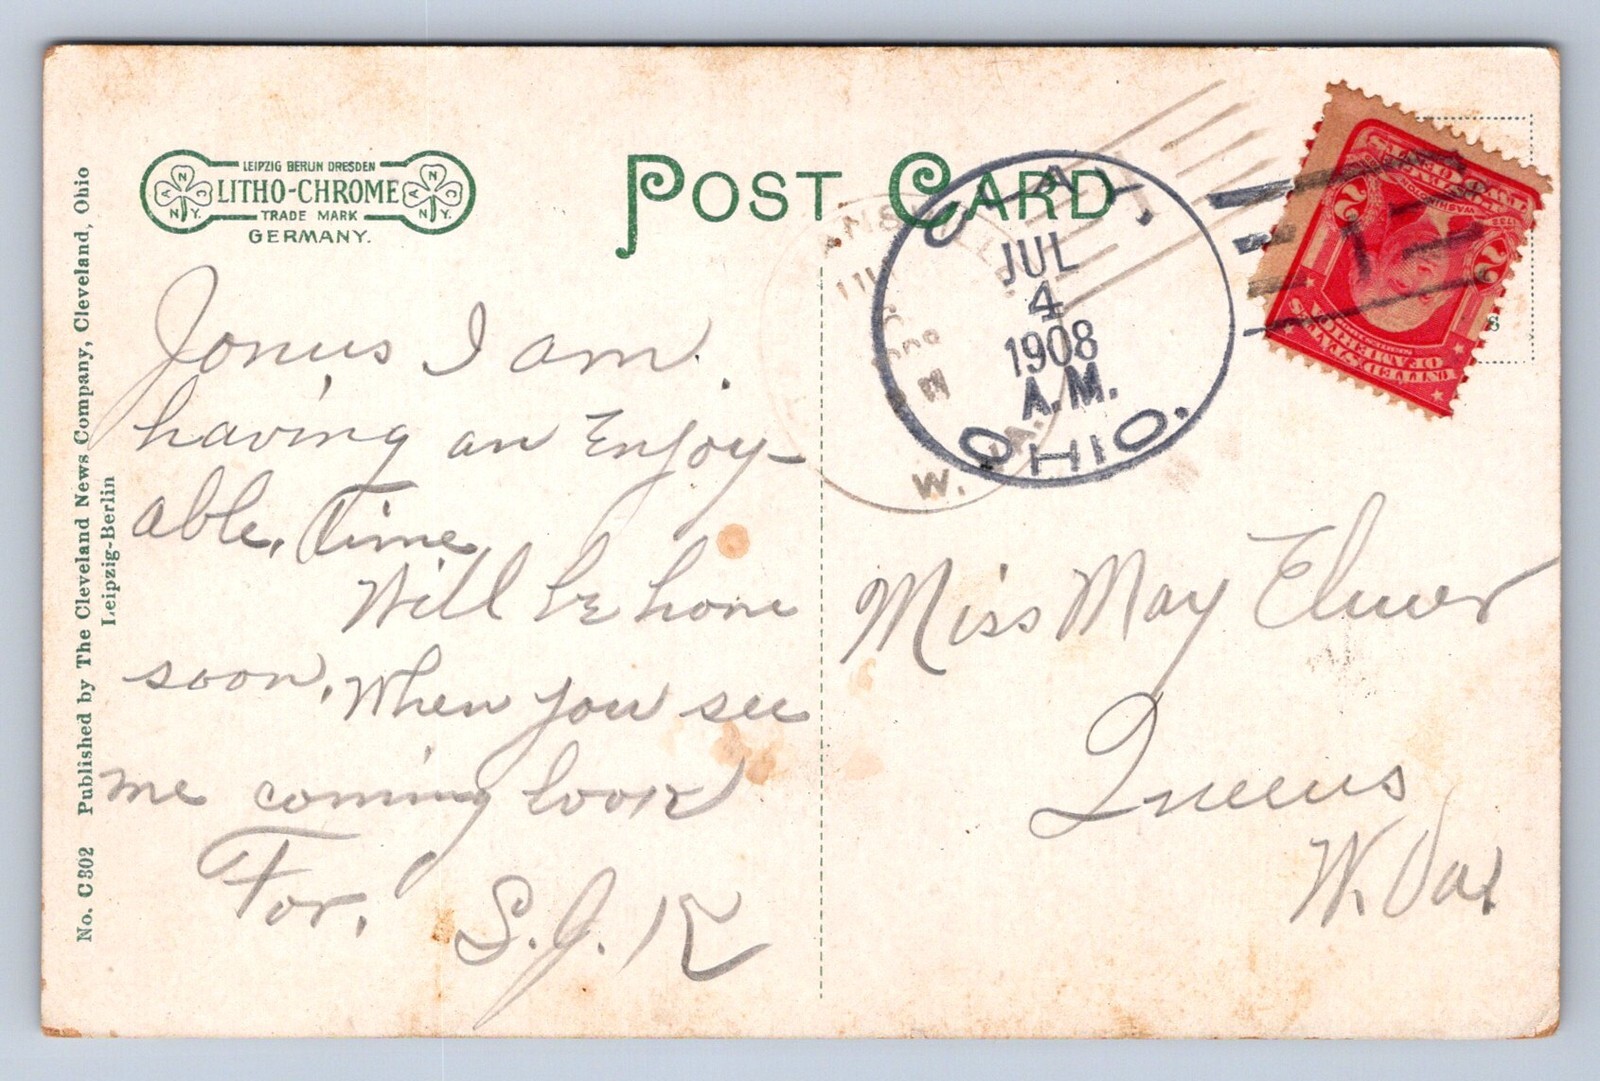 LEIPZIG BERLIN DRESDEN
LITHO-CHROME
TRADE MARK
GERMANY.
POST CARD
CLAY,
JUL
4
1908
A.M.
OHIO.
W. VA.
No. C 302 Published by The Cleveland News Company, Cleveland, Ohio
Leipzig-Berlin
Jonus I am.
having an Enjoy-
able, Time
Will be home
soon, When you see
me coming look
For.
S. J. K
Miss May Elmer
Queens
W. Va.